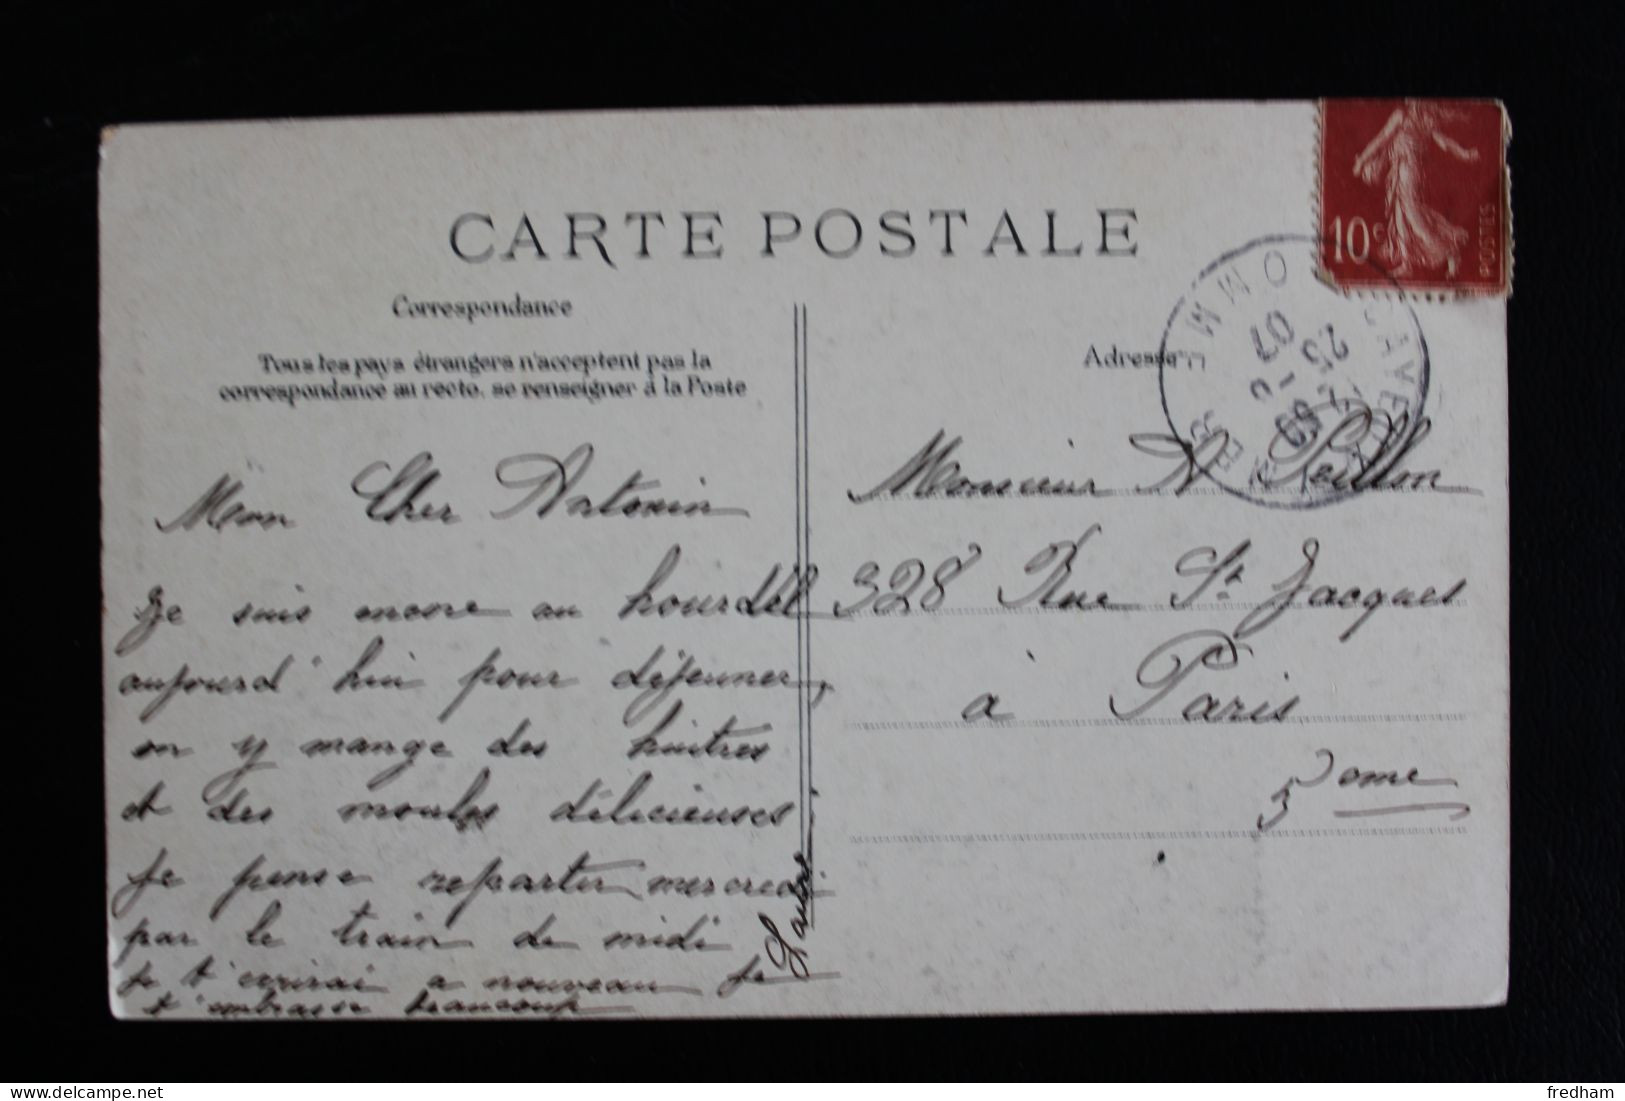 CARTE POSTALE
Correspondance
Tous les pays étrangers n'acceptent pas la
correspondance au recto, se renseigner à la Poste
Mon Cher Antonin
Je suis encore au hourdel
aujourd'hui pour déjeuner,
on y mange des huitres
et des moules délicieuses
Je pense repartir mercredi
par le train de midi
Je t'ecrirai a nouveau Je
t'embrasse beaucoup
Adresse
Monsieur A Peillon
328 Rue St Jacques
à Paris
5eme
10c
POSTES
CAYEUX
SOMME
25
07
fredham
delcampe.net